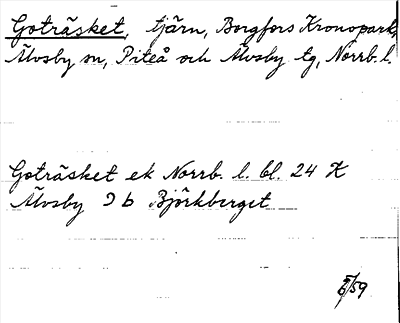 Goträsket, tjärn, Borgfors Kronopark,
Älvsby sn, Piteå och Älvsby tg, Norrb. l.
Goträsket ek Norrb. l. bl. 24 K
Älvsby 9 b Björkberget
/59